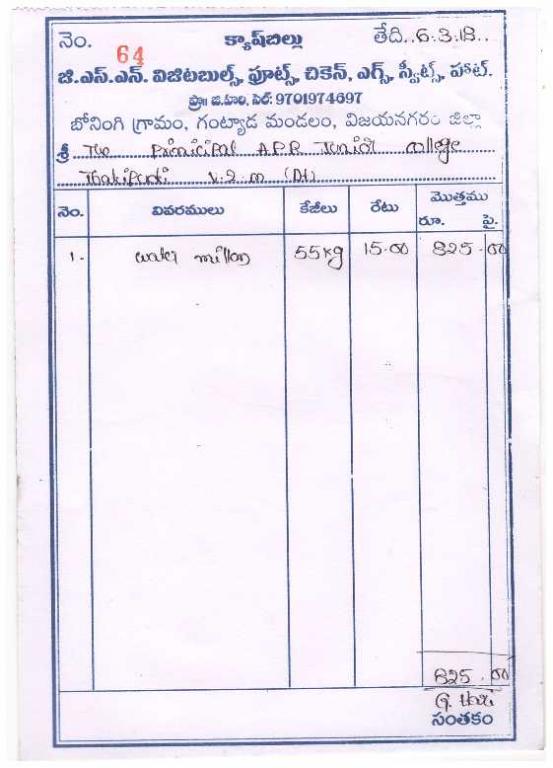 నెం. 64 క్యాష్‌బిల్లు తేది..6.3.18..
జి.ఎస్.ఎన్. విజిటబుల్స్, ఫ్రూట్స్, చికెన్, ఎగ్స్, స్వీట్స్, హాట్.
ప్రొ॥ జి.హరి, సెల్: 9701974697
బోనింగి గ్రామం, గంట్యాడ మండలం, విజయనగరం జిల్లా
శ్రీ The Prinicipal A.P.R Junior college
Thatipudi V.Z.m (Dt)
నెం. వివరములు కేజీలు రేటు మొత్తము
రూ. పై.
1. water millon 55kg 15.00 825.00
825.00
G. Hari
సంతకం